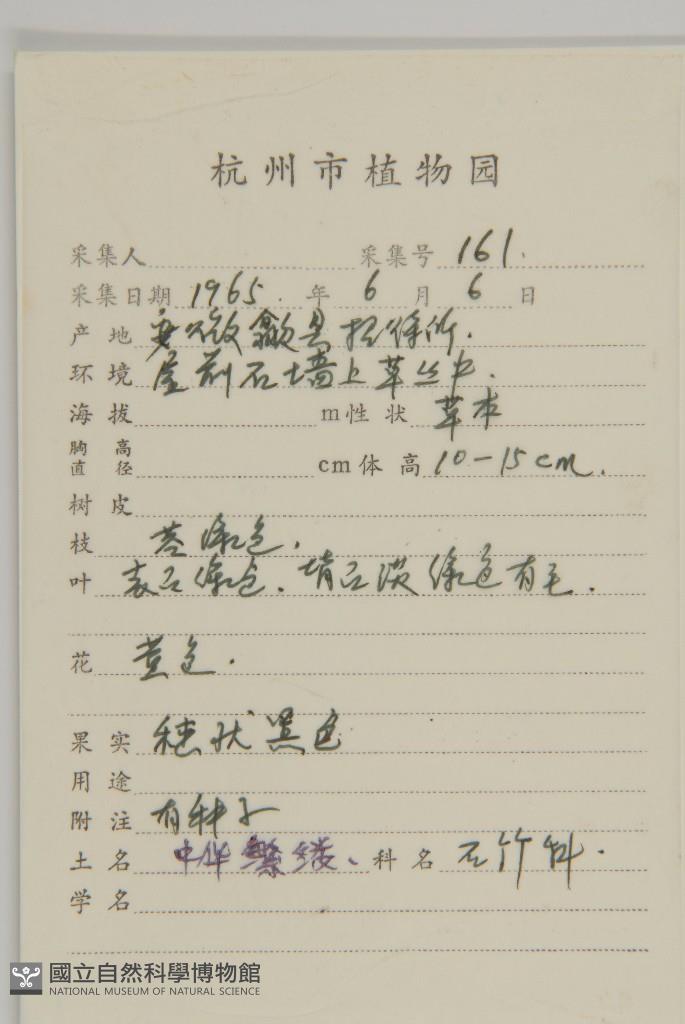 杭州市植物园
采集人 采集号 161.
采集日期 1965. 年 6 月 6 日
产地 安徽歙县
环境 屋前石墙上草丛中.
海拔 m性状 草本
胸高直径 cm体高 10-15cm.
树皮
枝 绿色.
叶 表面绿色. 背面淡绿色有毛.
花 黄色.
果实 穗状黑色
用途
附注 有种子
土名 中华繁缕、科名 石竹科.
学名
國立自然科學博物館
NATIONAL MUSEUM OF NATURAL SCIENCE